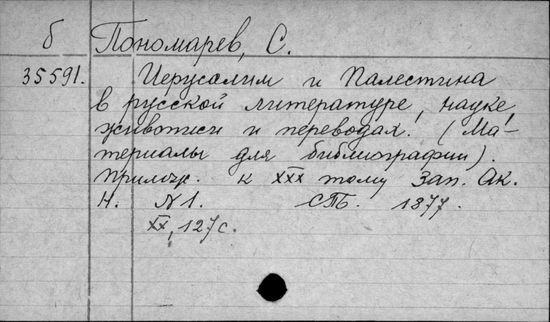 б Пономарев, С.
35591. Иерусалим и Палестина
в русской литературе, науке,
живописи и переводах. (Ма-
териалы для библиографии).
Прилож. к XXX тому Зап. Ак.
Н. №1. СПБ. 1877.
XX, 127 с.